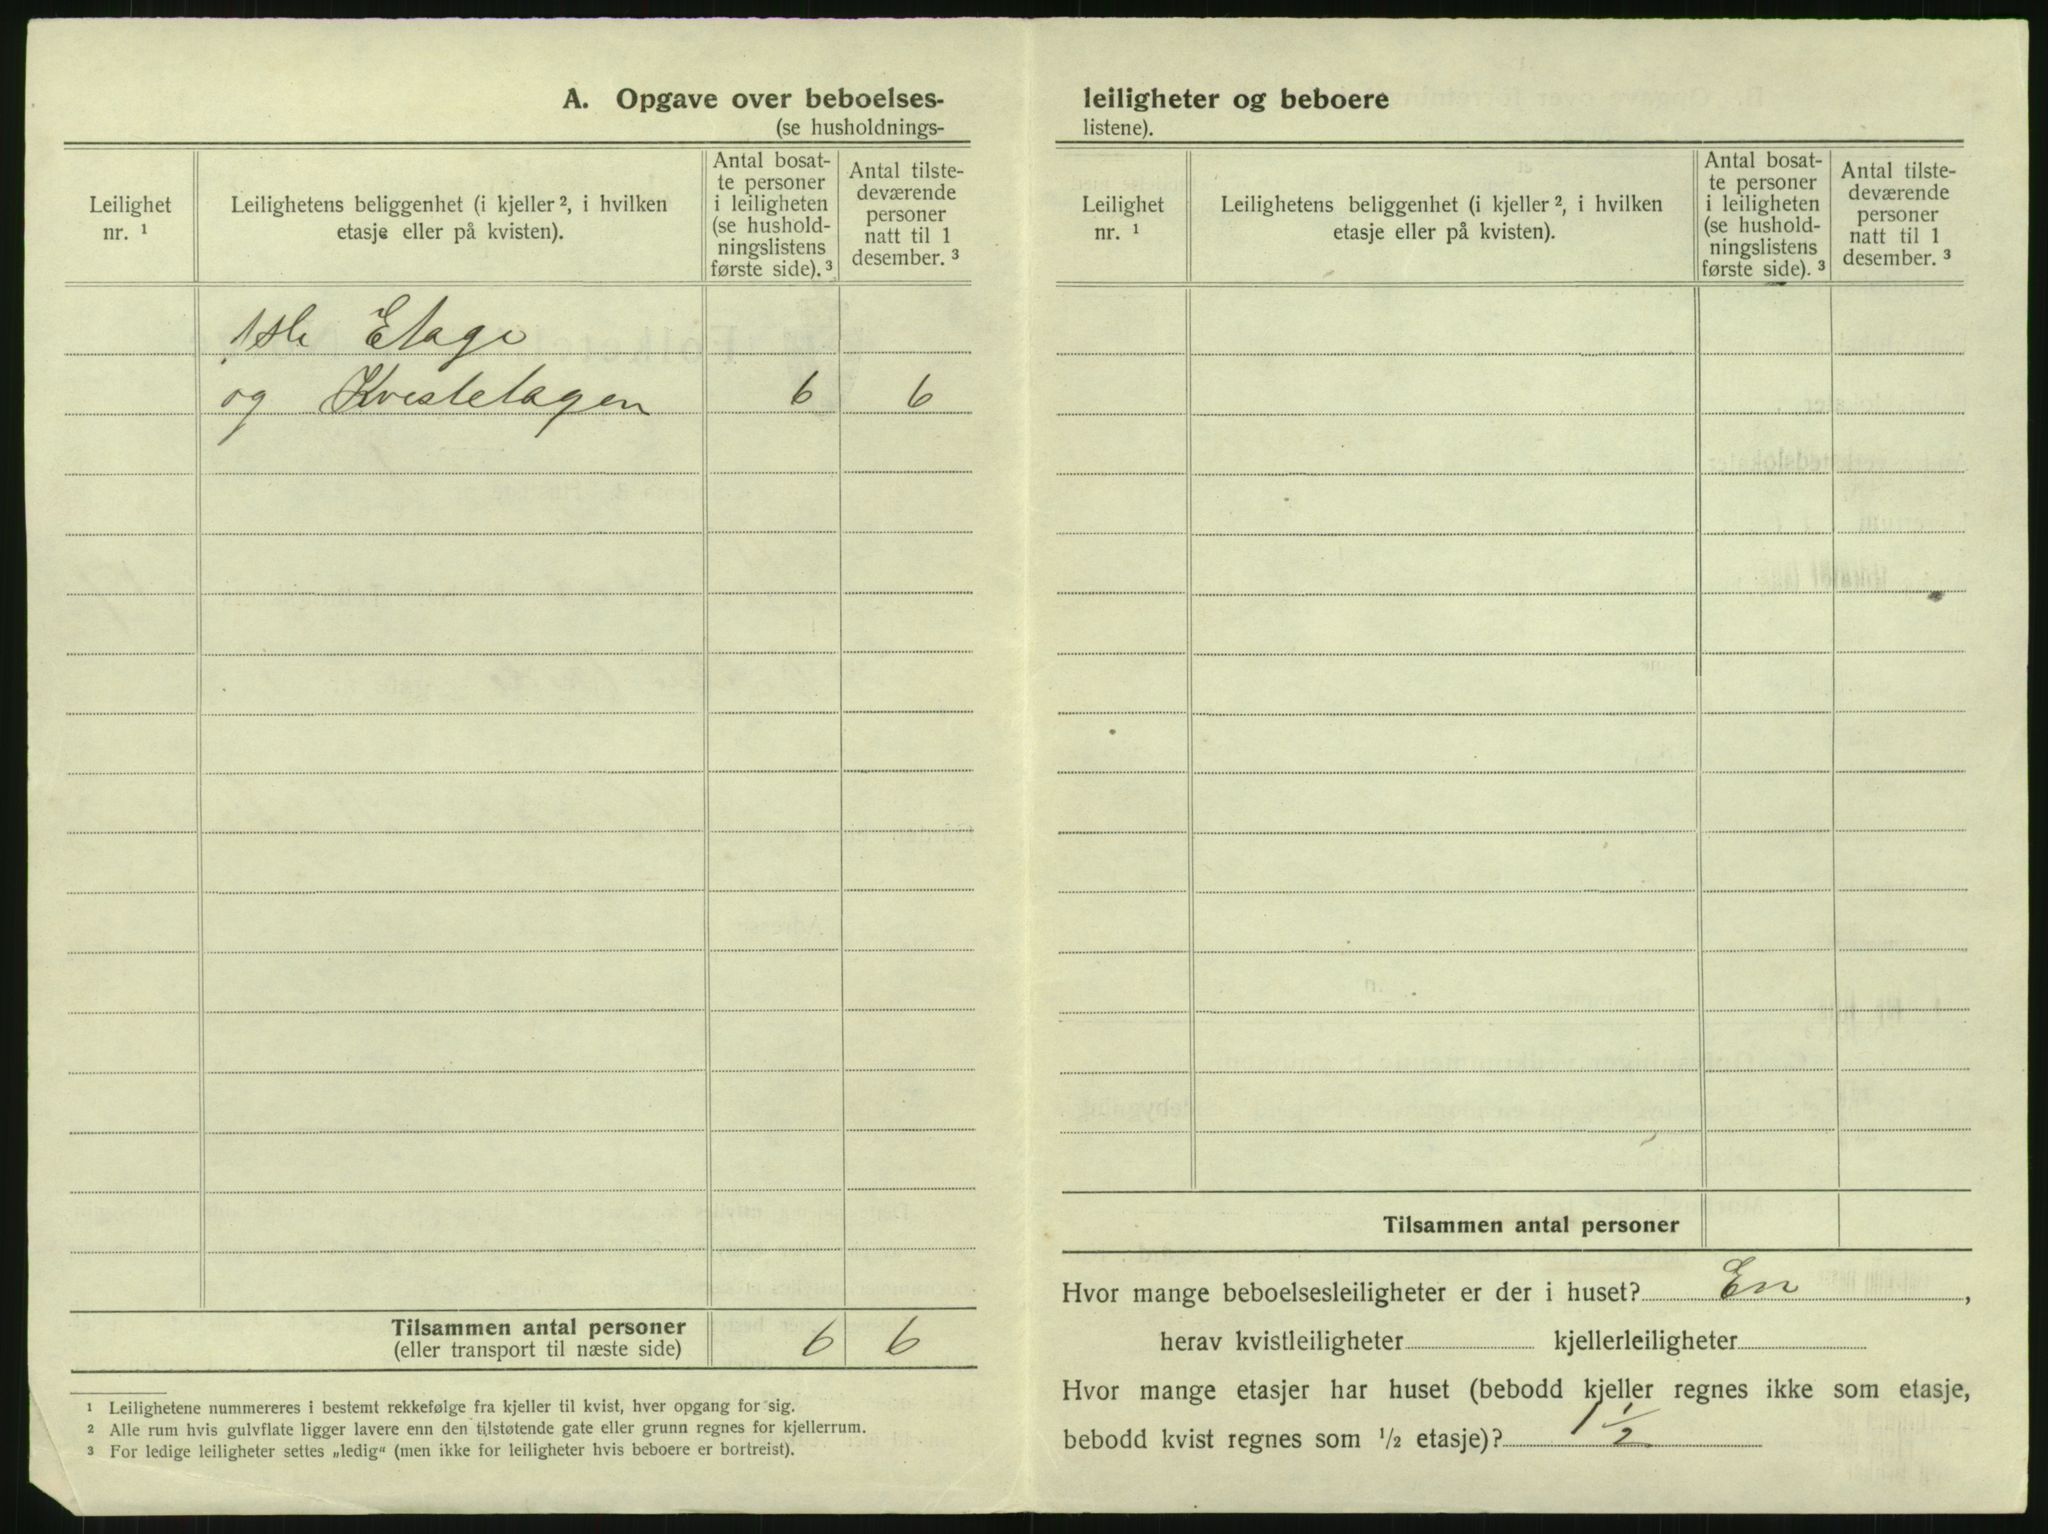 A. Opgave over beboelses-
(se husholdnings-
Leilighet
nr. ¹
Leilighetens beliggenhet (i kjeller ², i hvilken
etasje eller på kvisten).
Antal bosat-
te personer
i leiligheten
(se hushold-
ningslistens
første side). ³
Antal tilste-
deværende
personer
natt til 1
desember. ³
1ste Etage
og Kvistetagen 6 6
Tilsammen antal personer
(eller transport til næste side)
6 6
¹ Leilighetene nummereres i bestemt rekkefølge fra kjeller til kvist, hver opgang for sig.
² Alle rum hvis gulvflate ligger lavere enn den tilstøtende gate eller grunn regnes for kjellerrum.
³ For ledige leiligheter settes „ledig“ (men ikke for leiligheter hvis beboere er bortreist).
leiligheter og beboere
listene).
Leilighet
nr. ¹
Leilighetens beliggenhet (i kjeller ², i hvilken
etasje eller på kvisten).
Antal bosat-
te personer
i leiligheten
(se hushold-
ningslistens
første side). ³
Antal tilste-
deværende
personer
natt til 1
desember. ³
Tilsammen antal personer
Hvor mange beboelsesleiligheter er der i huset? En ,
herav kvistleiligheter kjellerleiligheter
Hvor mange etasjer har huset (bebodd kjeller regnes ikke som etasje,
bebodd kvist regnes som ½ etasje)? 1 ½